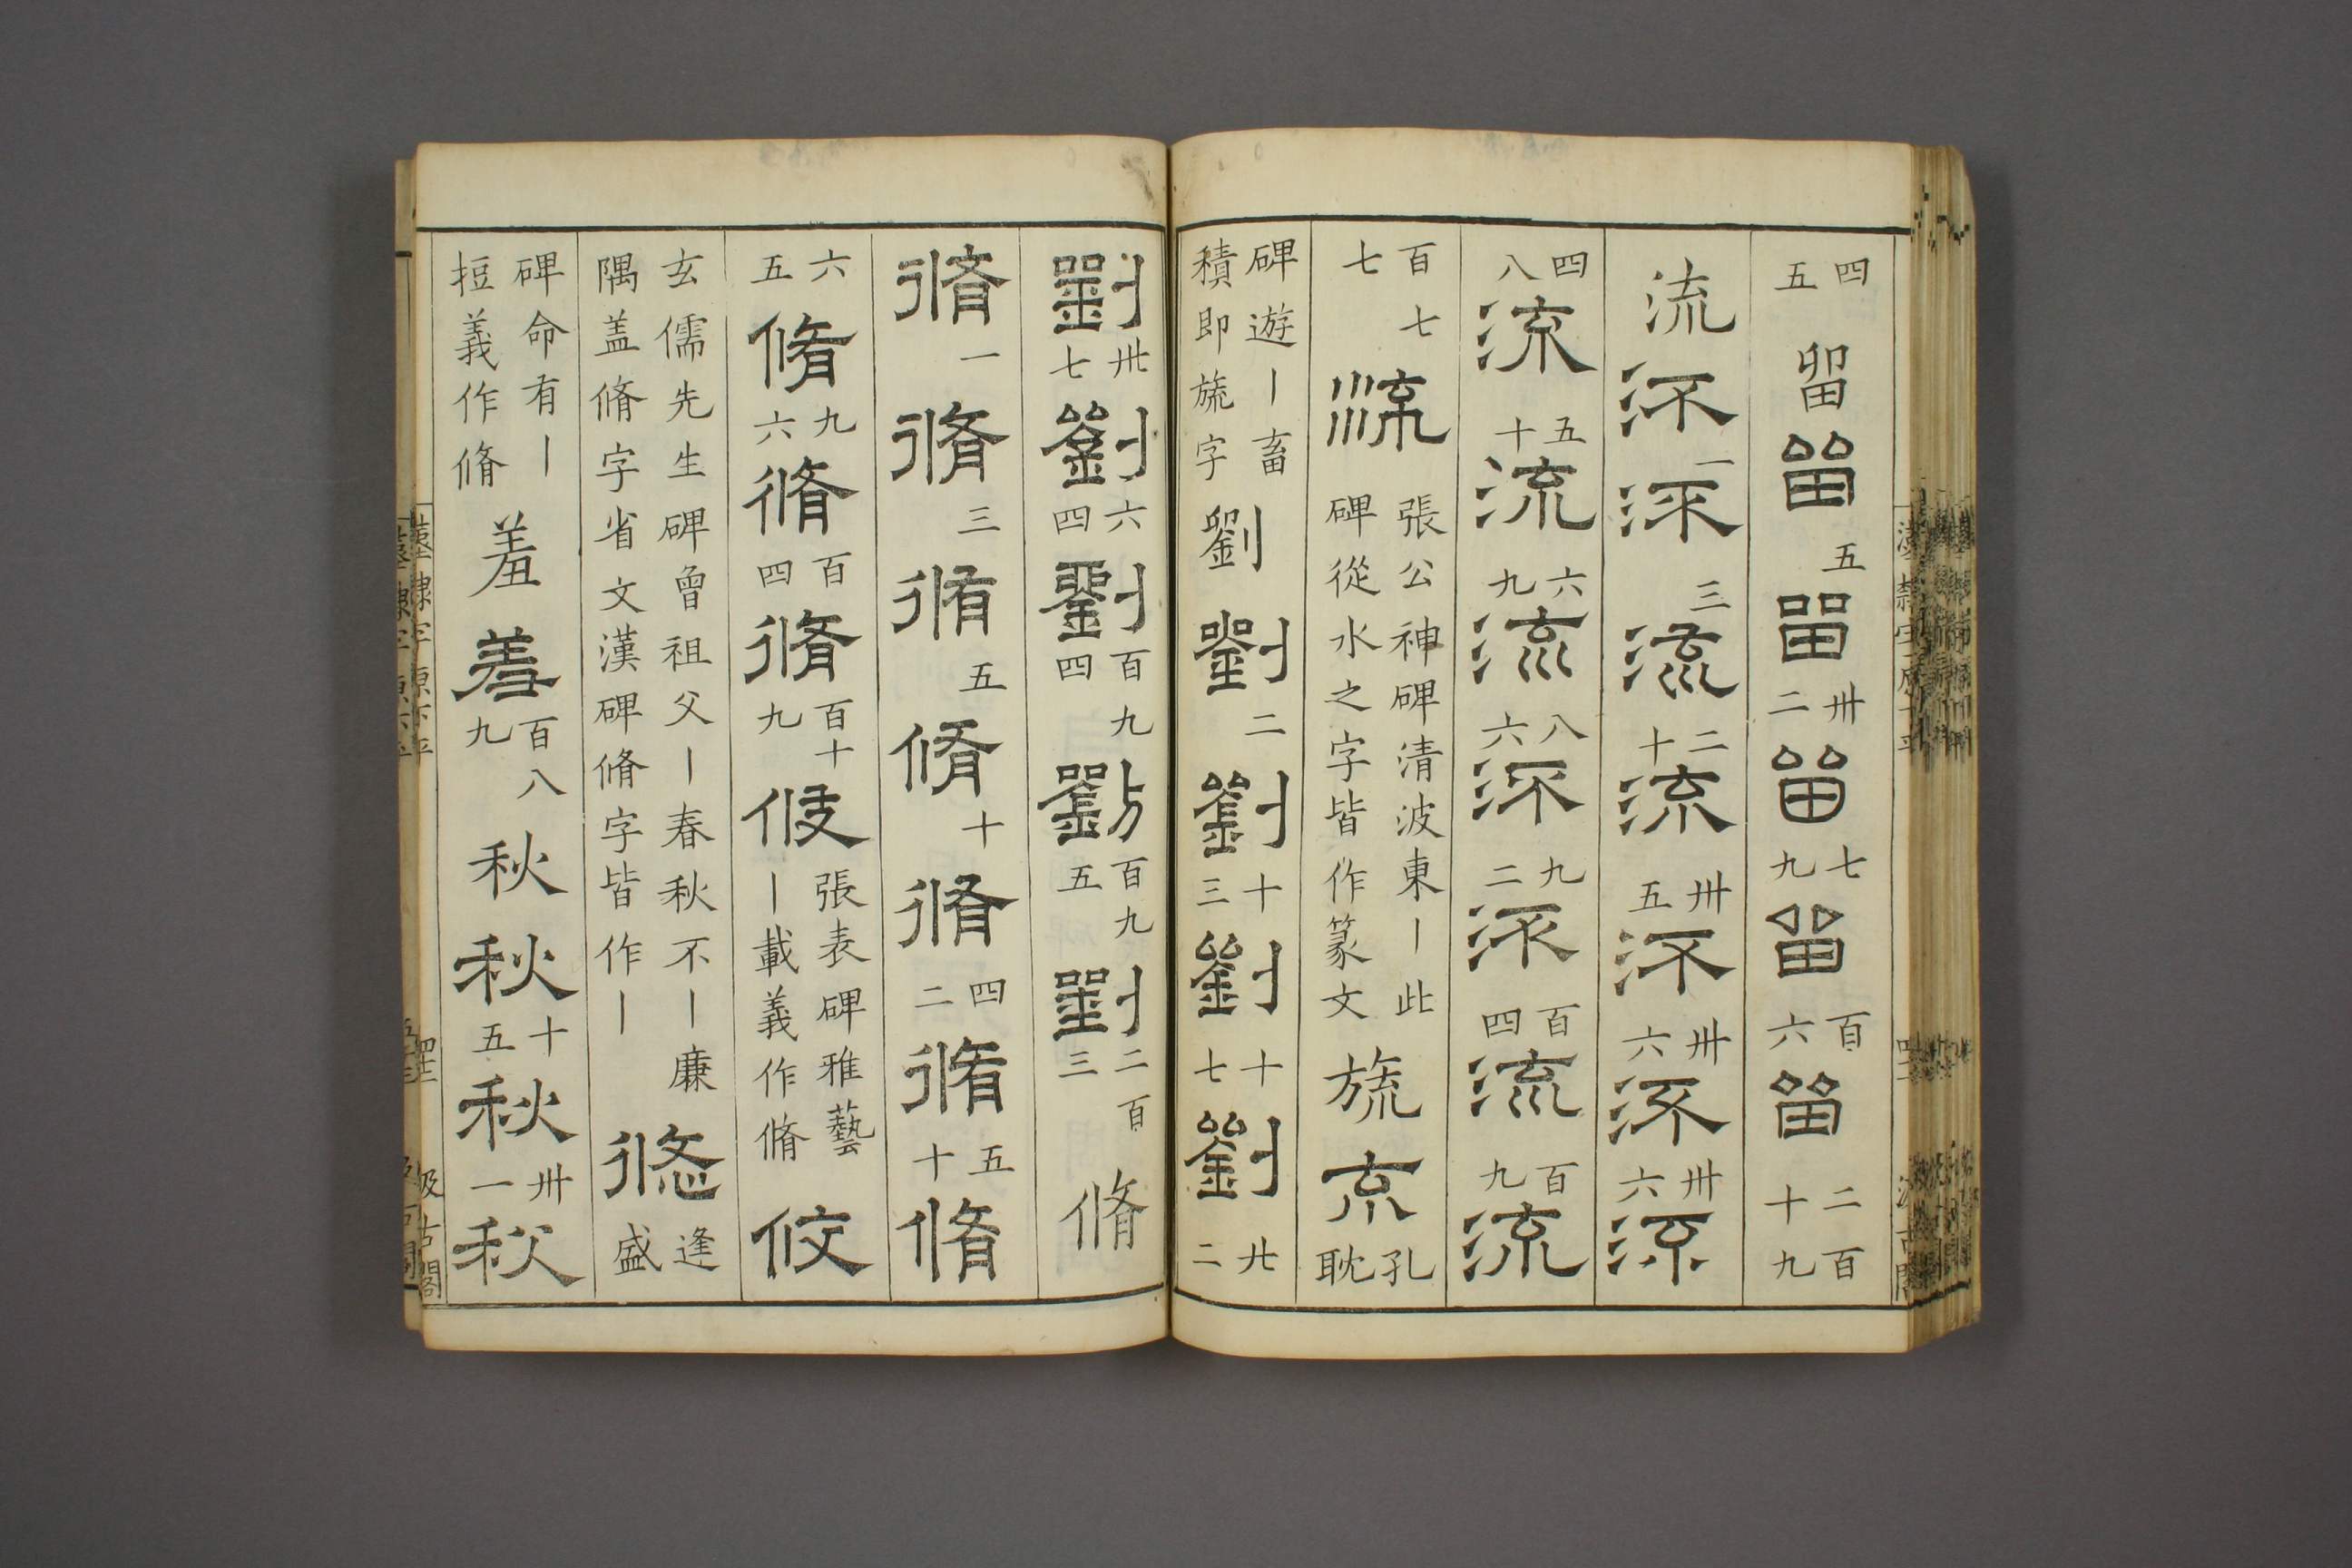 四五 留 留 五 留 卅二 留 七九 留 百六 留 二百十九
流 流 一 流 三 流 二十 流 卅五 流 卅六 流 卅六 流
四八 流 五十 流 六九 流 八六 流 九二 流 百四 流 百九 流
百七七 流 張公神碑清波東丨此碑從水之字皆作篆文 旒 㐬 孔耽
碑遊丨畜積即旒字 劉 劉 二 劉 十三 劉 十七 劉 廿二
劉 卅七 劉 六四 劉 百九四 劉 百九五 劉 二百三 脩
脩 一 脩 三 脩 五 脩 十 脩 四二 脩 五十 脩
六五 脩 九六 脩 百四 脩 百十九 㑪 張表碑雅藝丨載義作脩 攸
玄儒先生碑曾祖父丨春秋不丨廉隅盖脩字省文漢碑脩字皆作丨 悠 逢盛
碑命有丨挋義作脩 羞 羞 百八九 秋 秋 十五 秋 卅一 秋
漢隸字原下平 四十一 汲古閣